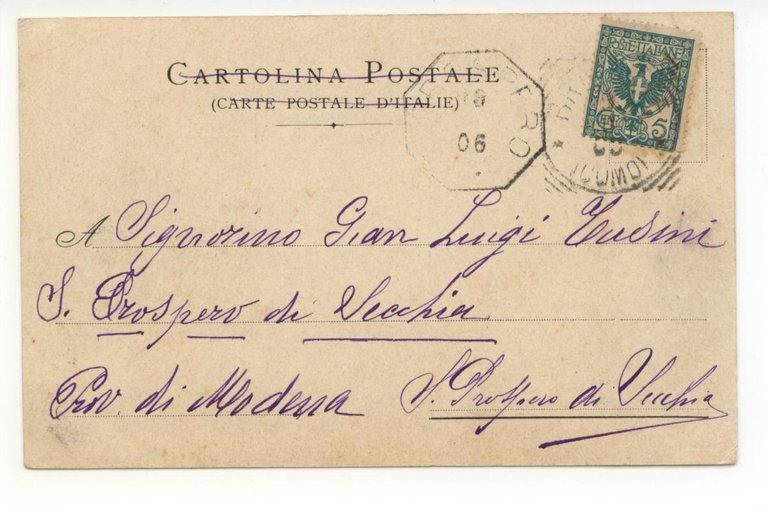 CARTOLINA POSTALE
(CARTE POSTALE D'ITALIE)
PERO
19
06
POSTE ITALIANE
5
(COMO)
A Signorino Gian Luigi Tusini
S. Prospero di Secchia
Prov. di Modena
S. Prospero di Secchia